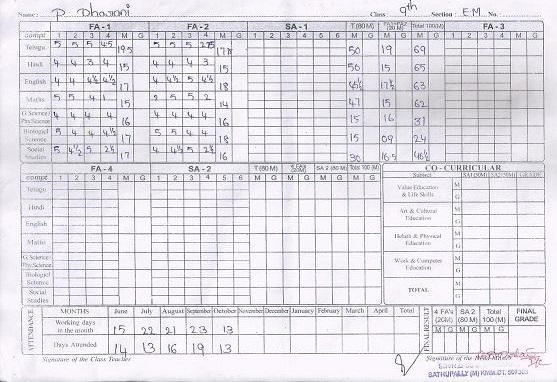 Name : P. Dharani Class : 9th Section : E.M No.
FA - 1 FA - 2 SA - 1 T (80 M) (20 M) Total (100M) FA - 3
compt 1 2 3 4 M G 1 2 3 4 M G 1 2 3 4 5 6 M G M G M G 1 2 3 4 M G
Telugu 5 5 5 4.5 19.5 5 5 5 50 19 69
Hindi 4 4 3 4 15 4 4 4 3 15 50 15 65
English 4 4 4½ 4½ 17 4 4½ 5 4½ 18 45½ 17½ 63
Maths 5 5 4 1 15 2 5 5 2 14 47 15 62
G.Science/
Phy.Science 4 4 4 4 16 4 4 4 4 16 15 16 31
Biological
Science 5 4 4 4½ 17 5 5 4 4 18 15 09 24
Social
Studies 4 4½ 5 2½ 17 4 4½ 5 2½ 16 30 16.5 46½
FA - 4 SA - 2 T (80 M) 4 FA's (20 M) SA 2 (80 M) Total 100 (M) CO - CURRICULAR
compt 1 2 3 4 M G 1 2 3 4 5 6 M G M G M G M G Subject SA1(50M) SA2(50M) GRADE
Telugu
Hindi
English
Maths
G.Science/
Phy.Science
Biological
Science
Social
Studies
Value Education
& Life Skills M G
Art & Cultural
Education M G
Helath & Physical
Education M G
Work & Computer
Education M G
TOTAL M G
ATTENDANCE MONTHS June July August September October November December January February March April Total
Working days
in the month 15 22 21 23 13
Days Attended 14 13 16 19 13
FINAL RESULT 4 FA's (20M) SA 2 (80 M) Total 100 (M) FINAL GRADE
M G M G M G
Signature of the Class Teacher Signature of the Head Master
SATHUPALLY (M) KMM.DT. 507303